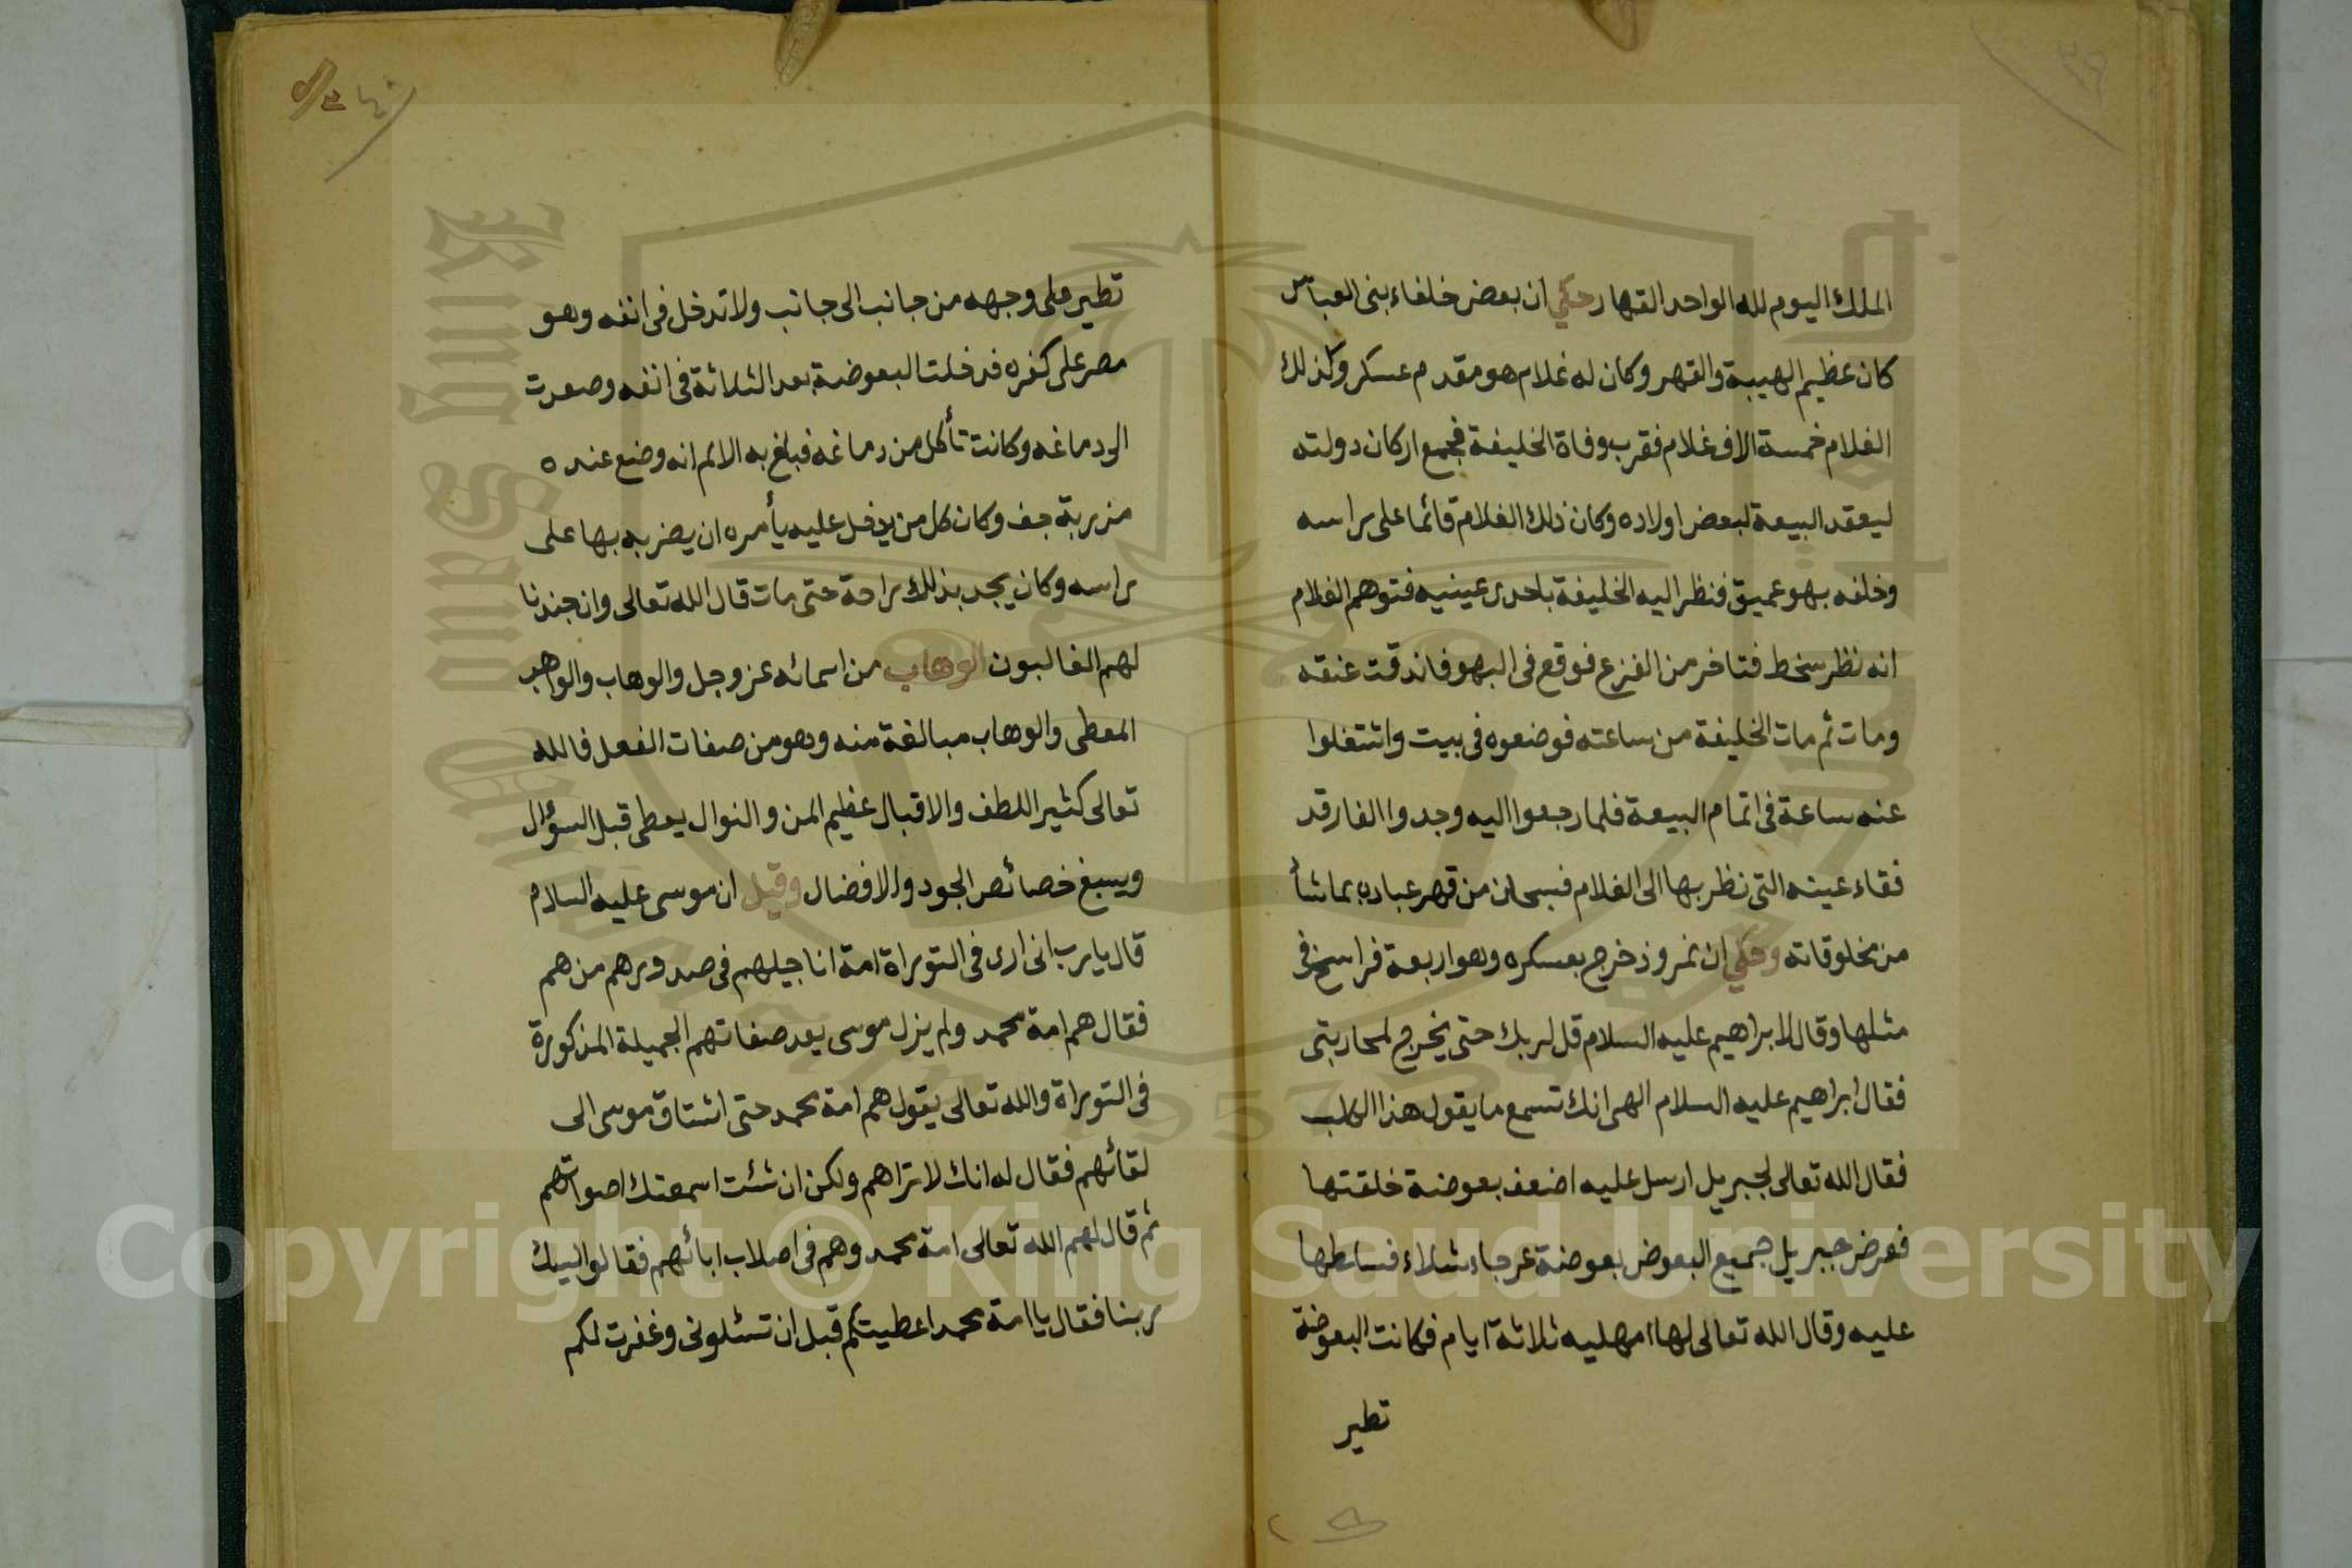 الملك اليوم لله الواحد القهار حكي ان بعض خلفاء بنى العباس
كان عظيم الهيبة والقهر وكان له غلام هو مقدم عسكر وكذلك
الغلام خمسة الاف غلام فقرب وفاة الخليفة فجمع اركان دولته
ليعقد البيعة لبعض اولاده وكان ذلك الغلام قائما على راسه
وخلفه بهو عميق فنظر اليه الخليفة باحدى عينيه فتوهم الغلام
انه نظر سخط فتاخر من الفزع فوقع فى البهو فاندقت عنقه
ومات ثم مات الخليفة من ساعته فوضعوه فى بيت واشتغلوا
عنه ساعة فى اتمام البيعة فلما رجعوا اليه وجدوا الفار قد
فقاء عينه التى نظر بها الى الغلام فسبحان من قهر عباده بما شأ
من مخلوقاته وحكي ان نمروذ خرج بعسكره وهو اربعة فراسخ فى
مثلها وقال لابراهيم عليه السلام قل لربك حتى يخرج لمحاربتى
فقال ابراهيم عليه السلام الهى انك تسمع ما يقول هذا الكلب
فقال الله تعالى لجبريل ارسل عليه اضعف بعوضة خلقتها
فعرض جبريل جميع البعوض بعوضة عرجاء شلاء فسلطها
عليه وقال الله تعالى لها امهليه ثلاثة ايام فكانت البعوضة
تطير
تطير على وجهه من جانب الى جانب ولا تدخل فى انفه وهو
مصر على كفره فدخلت البعوضة بعد الثلاثة فى انفه وصعدت
الى دماغه وكانت تأكل من دماغه فبلغ به الالم انه وضع عنده
مزربة جف وكان كل من يدخل عليه يأمره ان يضربه بها على
راسه وكان يجد بذلك راحة حتى مات قال الله تعالى وان جندنا
لهم الغالبون الوهاب من اسمائه عز وجل والوهاب والواهب
المعطى والوهاب مبالغة منه وهو من صفات الفعل فالله
تعالى كثير اللطف والاقبال عظيم المن والنوال يعطى قبل السؤال
ويسبغ خصائص الجود والافضال وقيل ان موسى عليه السلام
قال يارب انى ارى فى التوراة امة اناجيلهم فى صدورهم من هم
فقال هم امة محمد ولم يزل موسى يعد صفاتهم الجميلة المذكورة
فى التوراة والله تعالى يقول هم امة محمد حتى اشتاق موسى الى
لقائهم فقال له انك لا تراهم ولكن ان شئت اسمعتك اصواتهم
ثم قال لهم الله تعالى امة محمد وهم فى اصلاب ابائهم فقالوا لبيك
ربنا فقال يا امة محمد اعطيتكم قبل ان تسئلونى وغفرت لكم
٣٩
٤٠
Copyright © King Saud University
King Saud University
1957